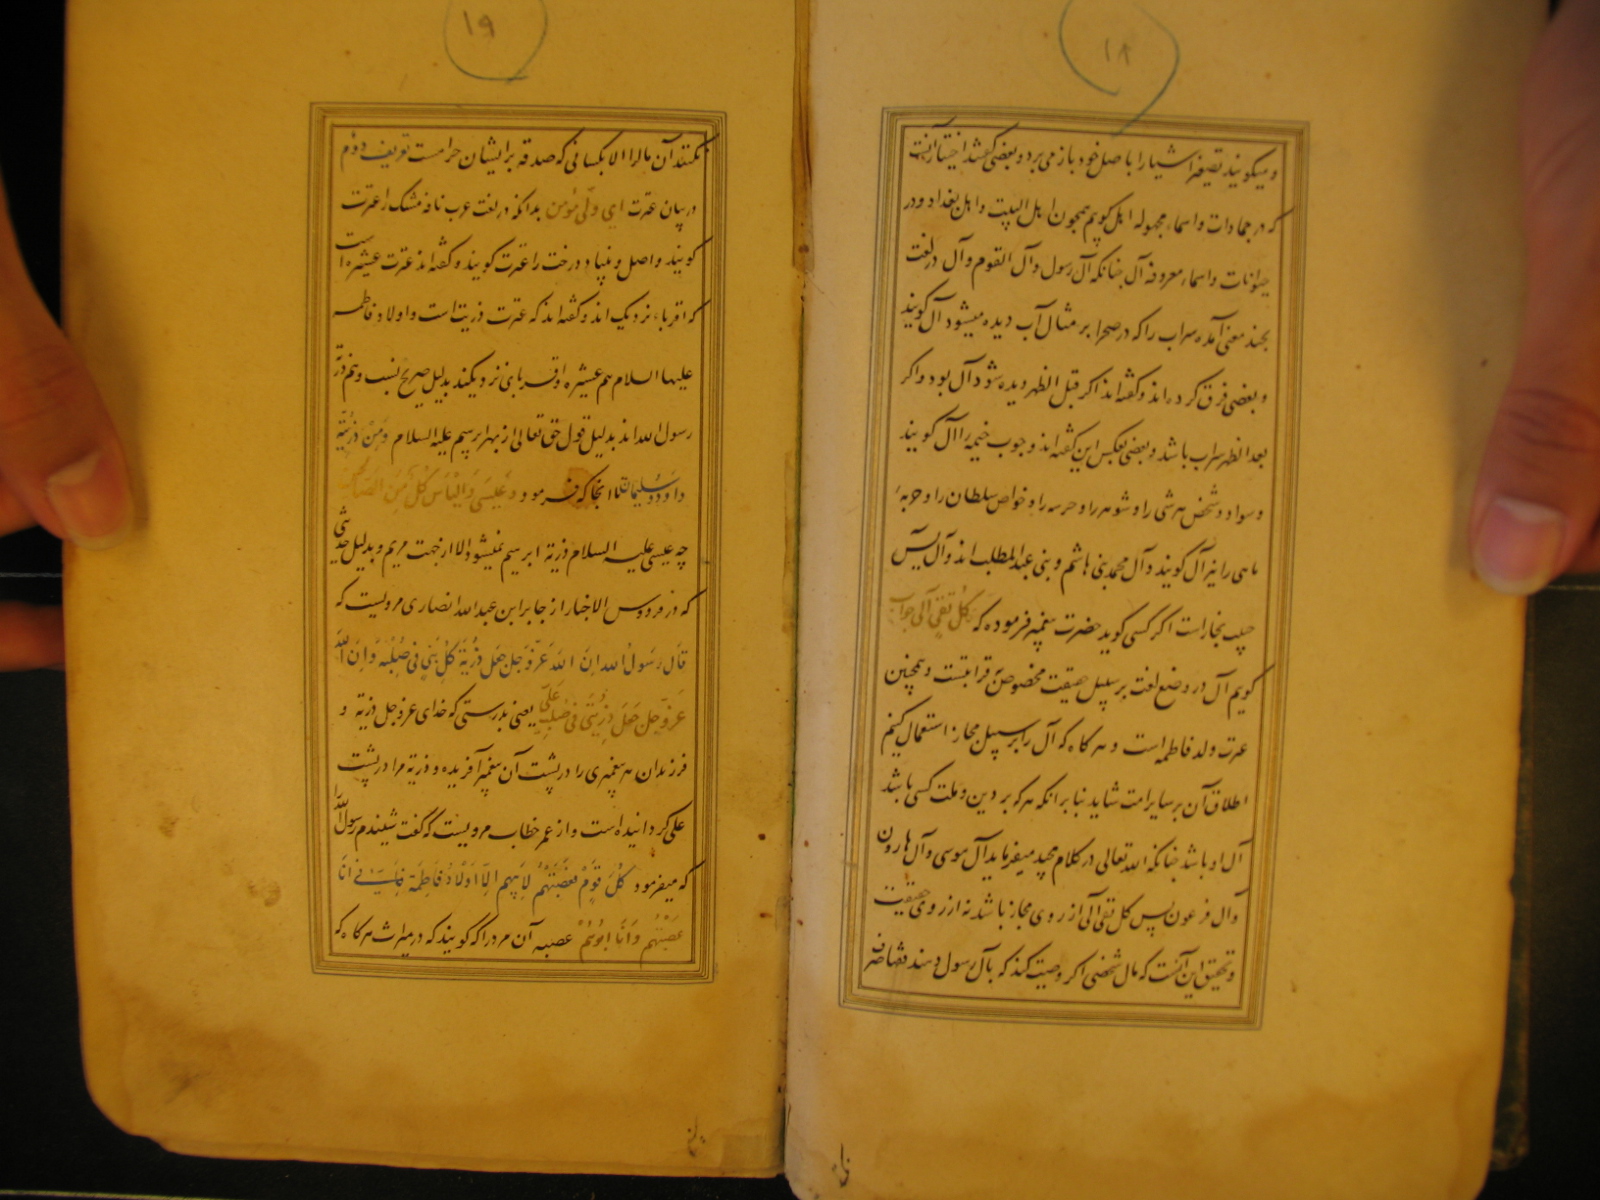 ۱۸
و میکویند تصیغر اشیا را باصل خود باز می برد و بعضی کفته اند اختیار آنست
که در جمادات و اسماء مجهوله اهل کویم همچون اهل البیت و اهل بغداد و در
حیوانات و اسماء معروفه آل چنانکه آل رسول و آل القوم و آل در لغت
بچند معنی آمده سراب را که در صحرا بر مثال آب دیده میشود آل کویند
و بعضی فرق کرده اند و کفته اند اکر قبل الظهر دیده شود آل بود و اکر
بعد الظهر سراب باشد و بعضی بعکس این کفته اند و چوب خیمه را آل کویند
و سواد و شخص هر شی را و شوهر را و حرسه را و خواص سلطان را و حربهٔ
ماهی را نیز آل کویند و آل محمد بنی هاشم و بنی عبدالمطلب اند و آل یس
حبیب نجار است اکر کسی کوید حضرت پیغمبر فرموده که کل تقی آلی جواب
کویم آل در وضع لغت بر سبیل حقیقت مخصوص قرابتست و همچنین
عترت ولد فاطمه است و هر کاه که آل را بر سبیل مجاز استعمال کنیم
اطلاق آن بر سایر امت شاید بنا برانکه هر که بر دین و ملت کسی باشد
آل او باشد چنانکه الله تعالی در کلام مجید میفرماید آل موسی و آل هارون
و آل فرعون پس کل تقی آلی از روی مجاز باشد نه از روی حقیقت
و تحقیق این آنست که مال شخصی اکر وصیت کند که بآل رسول دهند فقها صرف
۱۹
نکنند آن مال را الا بکسانی که صدقه بر ایشان حرامست تعریف دوم
در بیان عترت ای ولی مؤمن بدانکه در لغت عرب نافه مشک را عترت
کویند و اصل و بنیاد درخت را عترت کویند و کفته اند عترت عشیره است
که اقرباء نزدیک اند و کفته اند که عترت ذریت است و اولاد فاطمه
علیها السلام هم عشیره و اقربای نزدیکند بدلیل صریح نسب و هم ذریة
رسول الله اند بدلیل قول حق تعالی از بهر ابرهیم علیه السلام وَمِنْ ذُرِّیَّتِهِ
دَاوُدَ وَ سُلَیْمانَ تا انجا که فرمود وَ عِیسَی وَ اِلْیَاسَ کُلٌّ مِنَ الصَّالِحِینَ
چه عیسی علیه السلام ذریة ابرهیم نمیشود الا از جهت مریم و بدلیل حدیثی
که در فردوس الاخبار از جابر ابن عبدالله انصاری مرویست که
قَالَ رَسُولُ الله اِنَّ اللهَ عَزَّ وَجَلَّ جَعَلَ ذُرِّیَّةَ کُلِّ نَبِیٍّ فی صُلْبِهِ وَ اِنَّ اللهَ
عَزَّ وَجَلَّ جَعَلَ ذُرِّیَّتی فی صُلْبِ عَلیٍّ یعنی بدرستی که خدای عز و جل ذریة و
فرزندان هر پیغمبری را در پشت آن پیغمبر آفریده و ذریة مرا در پشت
علی کردانیده است و از عمر خطاب مرویست که کفت شنیدم رسول الله را
که میفرمود کُلُّ قَوْمٍ فَعَصَبَتُهُمْ لِاَبِیهِمْ اِلَّا اَوْلَادَ فَاطِمَةَ فَاِنِّی اَنَا
عَصَبَتُهُمْ وَ اَنَا اَبُوهُمْ عصبه آن مرد را کویند که در میراث هر کاه که